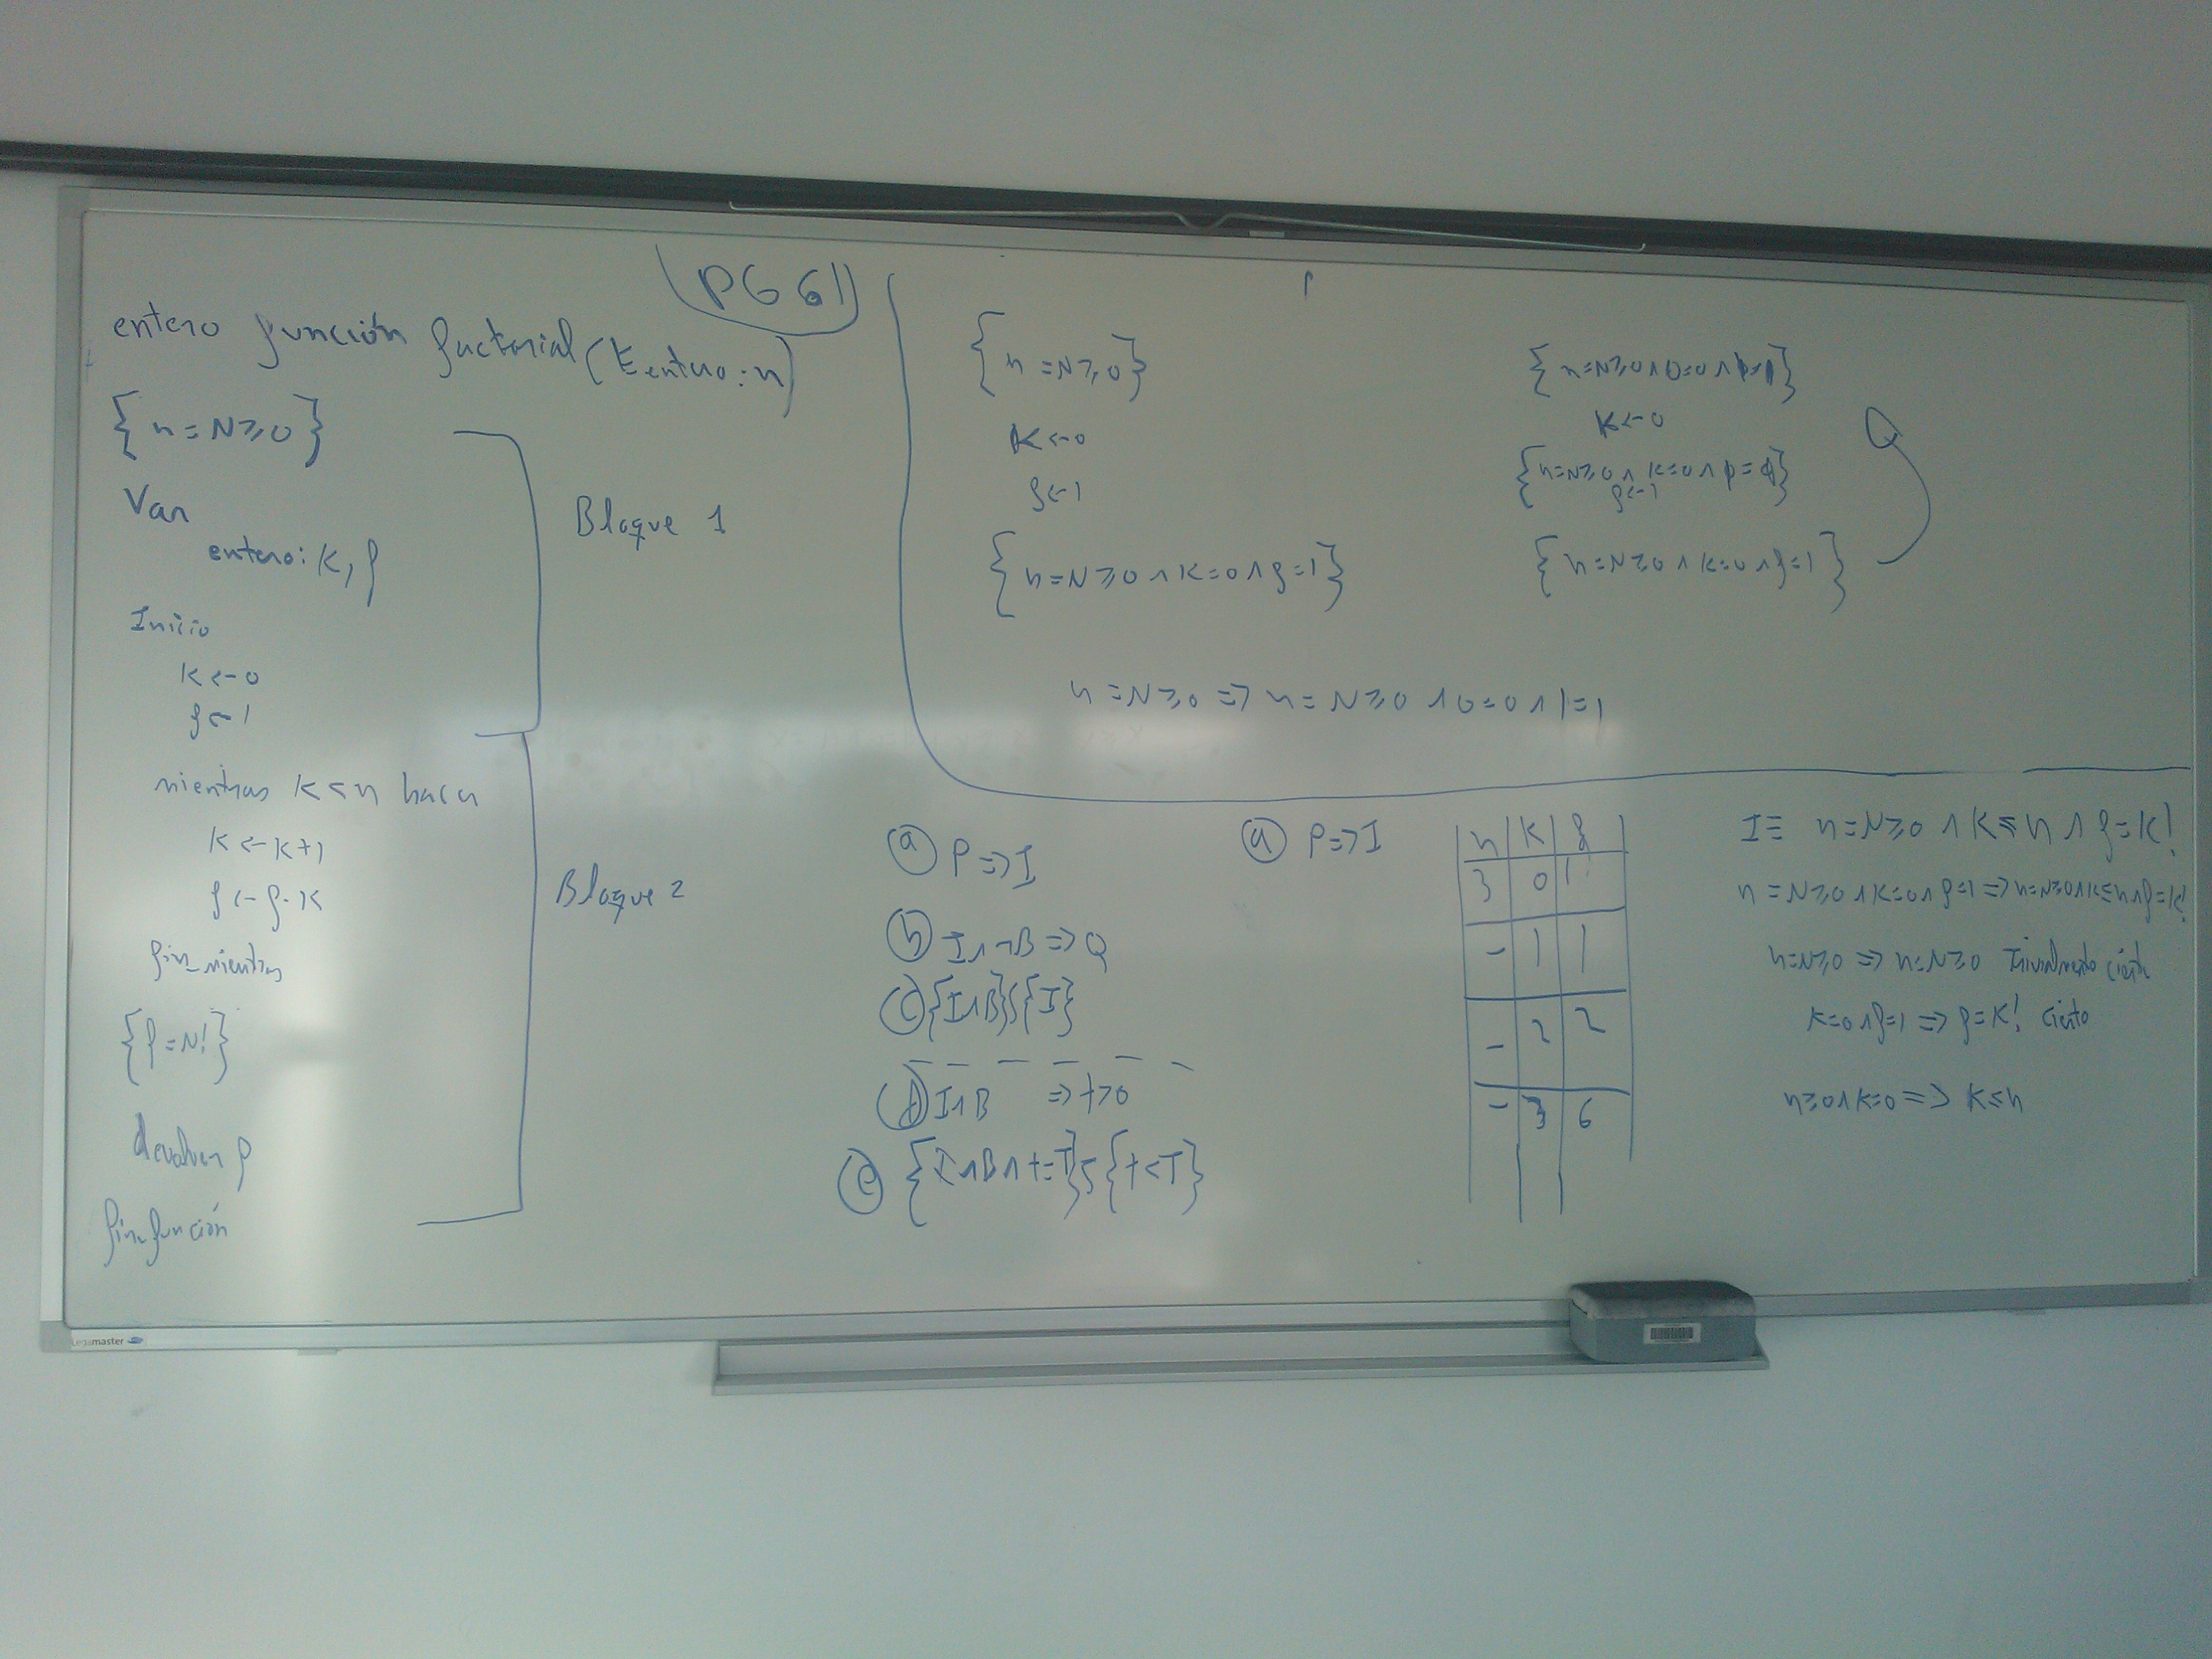 PG 61
entero función factorial (E entero: n)
{n = N ≥ 0}
Var
entero: K, f
Inicio
K <- 0
f <- 1
mientras K < n hacer
K <- K+1
f <- f · K
fin_mientras
{f = N!}
devolver f
fin_función
Bloque 1
Bloque 2
{n = N ≥ 0}
K <- 0
f <- 1
{n = N ≥ 0 ∧ K = 0 ∧ f = 1}
{n = N ≥ 0 ∧ 0 = 0 ∧ 1=1}
K <- 0
{n = N ≥ 0 ∧ K = 0 ∧
f <- 1
{n = N ≥ 0 ∧ K = 0 ∧ f = 1}
n = N ≥ 0 => n = N ≥ 0 ∧ 0 = 0 ∧ 1 = 1
a P => I
b I ∧ ¬B => Q
c {I ∧ B} S {I}
d I ∧ B => t > 0
e {I ∧ B ∧ t = T} S {t < T}
a P => I
n K f
3 0 1
- 1 1
- 2 2
- 3 6
I ≡ n = N ≥ 0 ∧ K ≤ n ∧ f = K!
n = N ≥ 0 ∧ K = 0 ∧ f = 1 => n = N ≥ 0 ∧ K ≤ n ∧ f = K!
n = N ≥ 0 => n = N ≥ 0 Trivialmente cierto
K = 0 ∧ f = 1 => f = K! Cierto
n ≥ 0 ∧ K = 0 => K ≤ n
Legamaster